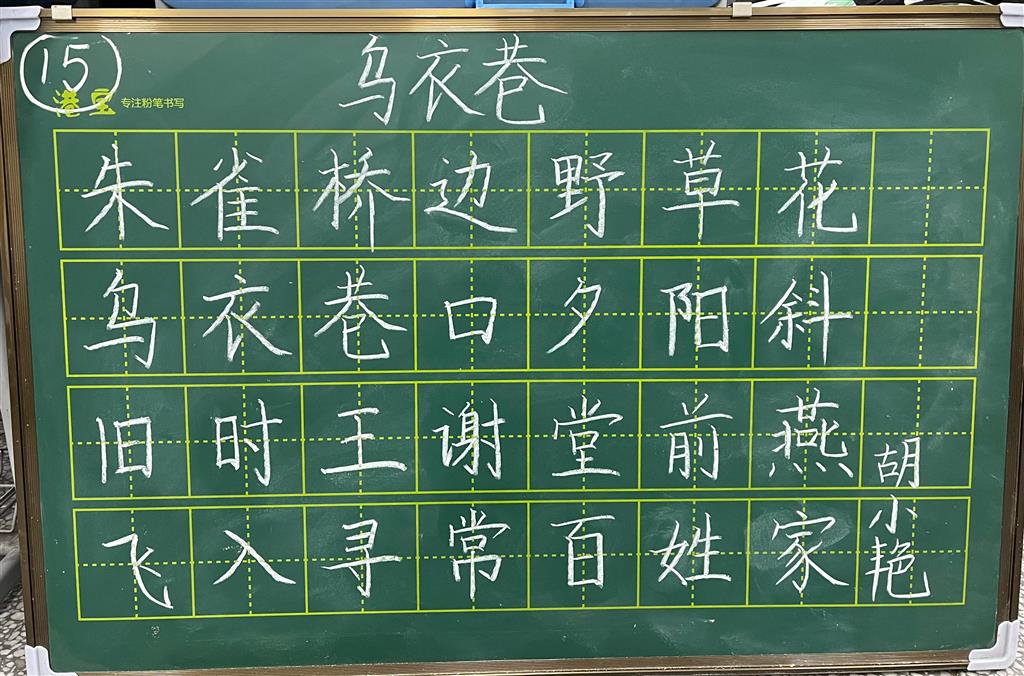 15
港宝 专注粉笔书写
乌衣巷
朱雀桥边野草花
乌衣巷口夕阳斜
旧时王谢堂前燕
飞入寻常百姓家
胡小艳